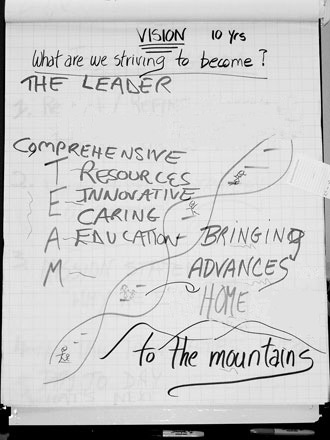 VISION 10 yrs
What are we striving to become?
THE LEADER
COMPREHENSIVE
T RESOURCES
E INNOVATIVE
CARING
A EDUCATION BRINGING
M ADVANCES
HOME
to the mountains